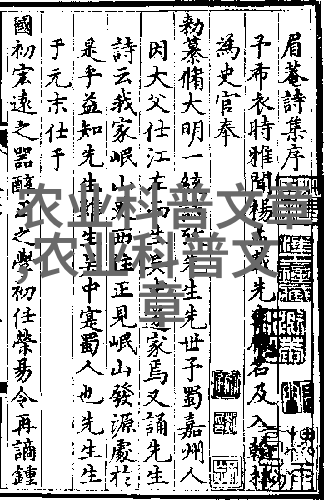 眉菴詩集序
予布衣時雅聞楊孟載先名及入翰林
為史官奉
勑纂脩大明一統先生先世予蜀嘉州人
因大父仕江左而生吳中家焉又誦先生
詩云我家岷山更西住正見岷山發源處於
是乎益知先生雖生吳中寔蜀人也先生生
于元末仕于
國初宏遠之器醇正之學初任滎易令再謫鍾
农业科普文章
,农业科普文
章